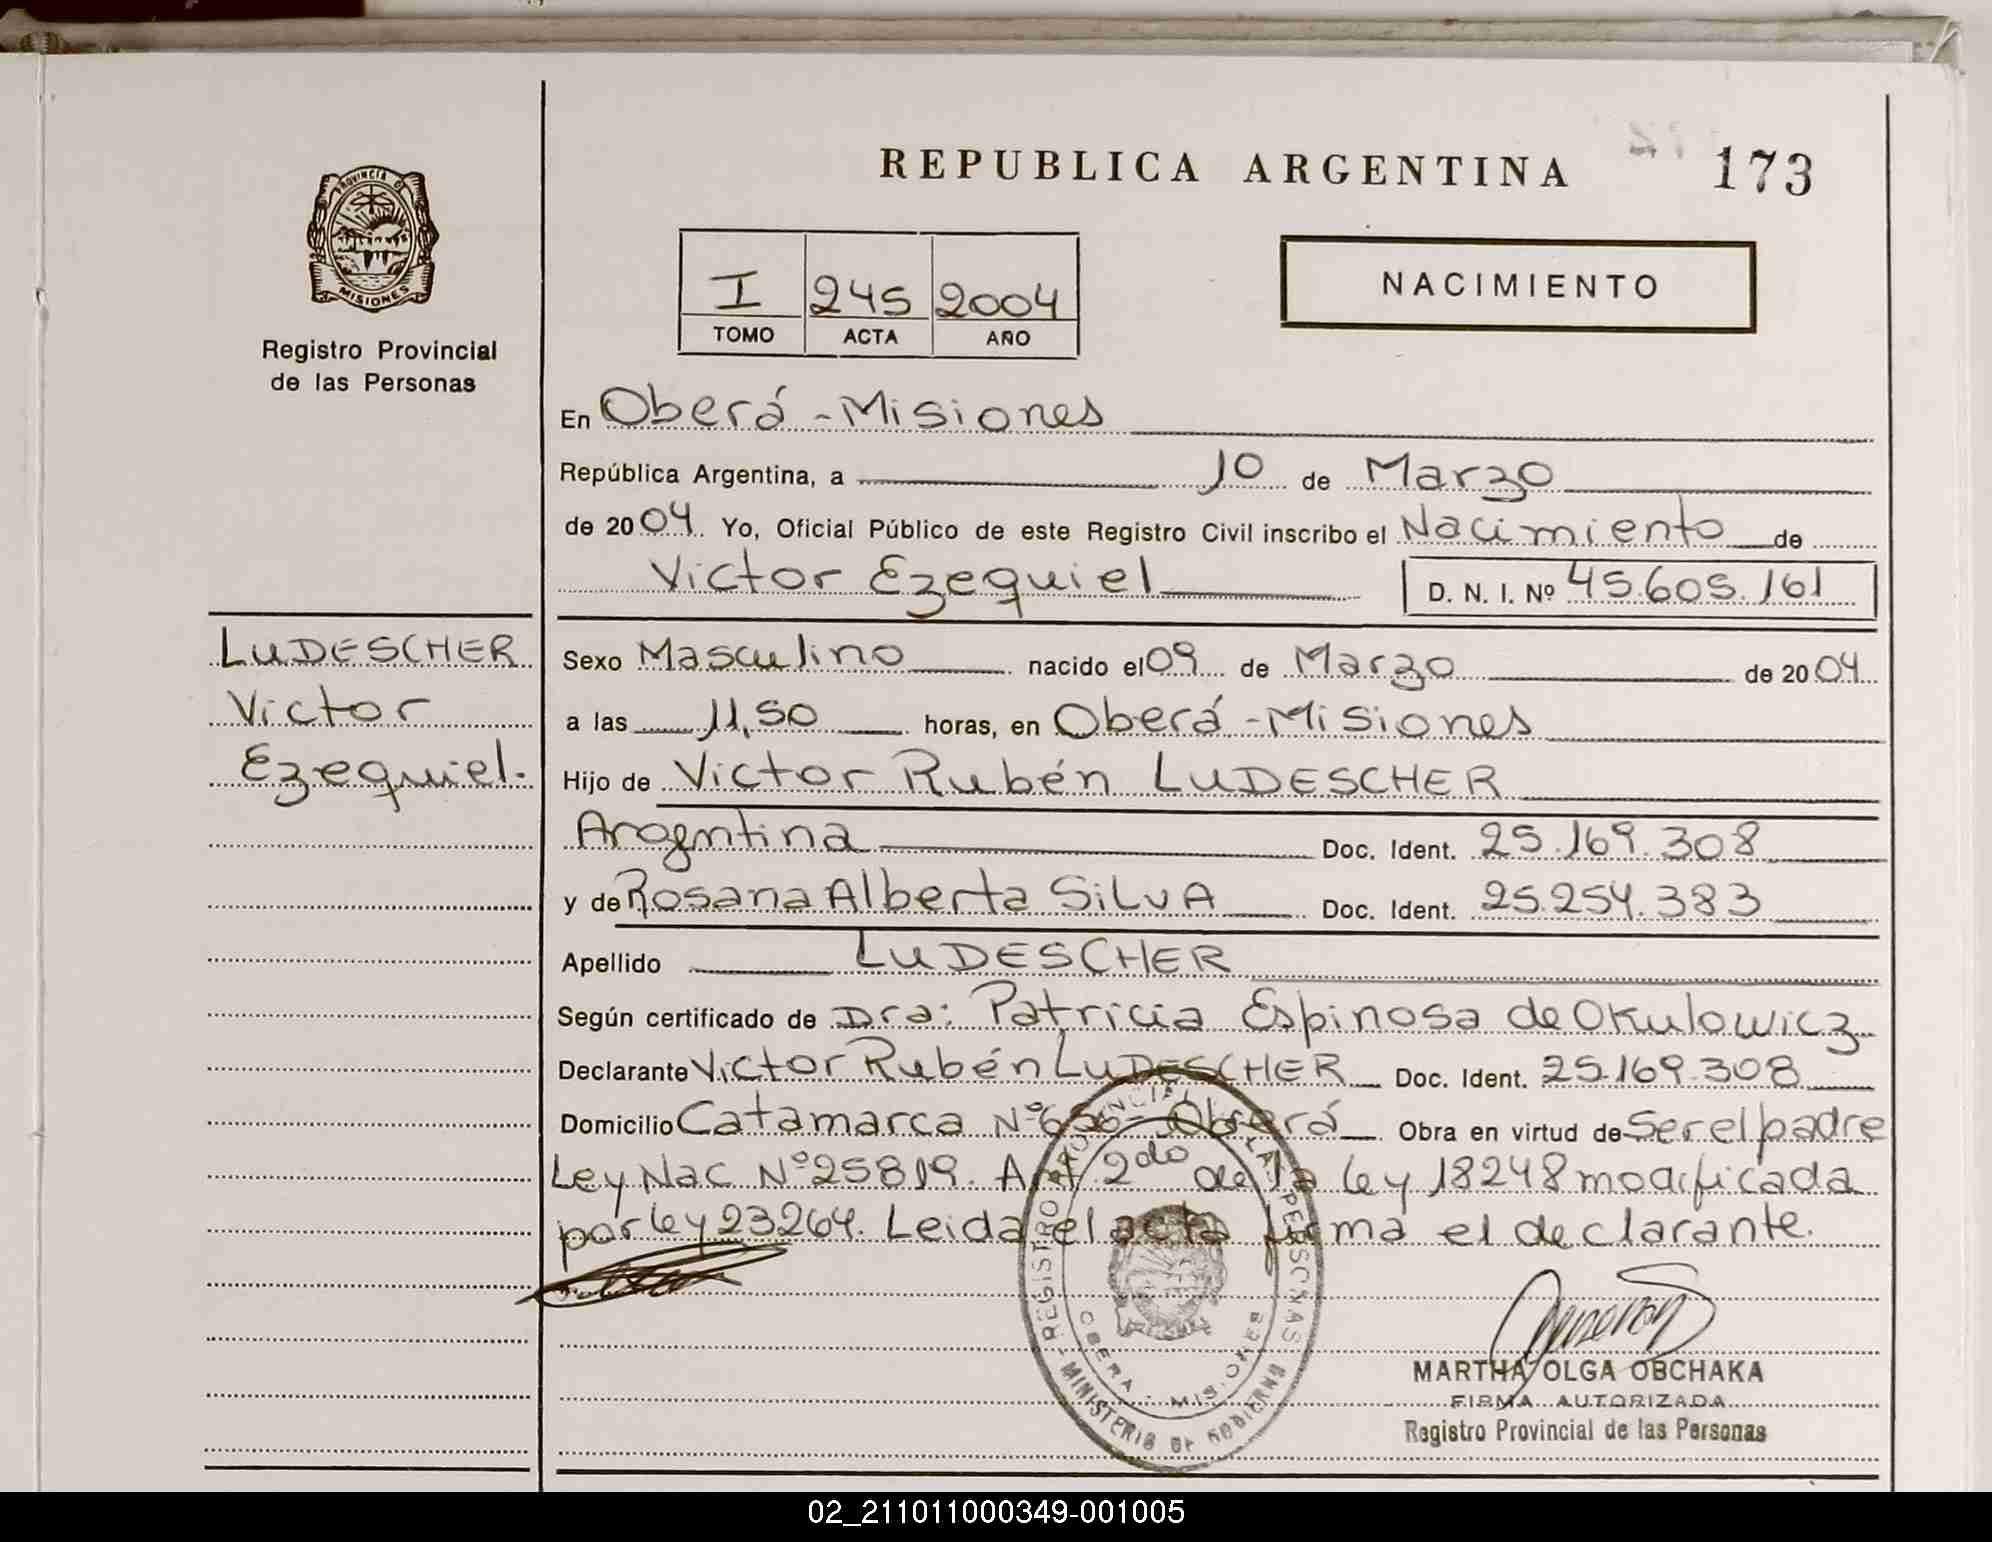 REPUBLICA ARGENTINA
173
PROVINCIA DE
MISIONES
Registro Provincial
de las Personas
I 245 2004
TOMO ACTA AÑO
NACIMIENTO
En Oberá - Misiones
República Argentina, a 10 de Marzo
de 2004. Yo, Oficial Público de este Registro Civil inscribo el Nacimiento de
Victor Ezequiel D. N. I. Nº 45.605.161
LUDESCHER
Victor
Ezequiel.
Sexo Masculino nacido el 09 de Marzo de 2004
a las 11,50 horas, en Oberá - Misiones
Hijo de Victor Rubén LUDESCHER
Argentina Doc. Ident. 25.169.308
y de Rosana Alberta SILVA Doc. Ident. 25.254.383
Apellido LUDESCHER
Según certificado de Dra: Patricia Espinosa de Okulowicz
Declarante Victor Rubén LUDESCHER Doc. Ident. 25.169.308
Domicilio Catamarca Nº - Oberá Obra en virtud de Ser el padre
Ley Nac Nº 25819. Art 2do de la ley 18248 modificada
por ley 23264. Leida el acta firma el declarante.
REGISTRO PROVINCIAL DE LAS PERSONAS
OBERA - MISIONES
MINISTERIO DE GOBIERNO
MARTHA OLGA OBCHAKA
FIRMA AUTORIZADA
Registro Provincial de las Personas
02_211011000349-001005